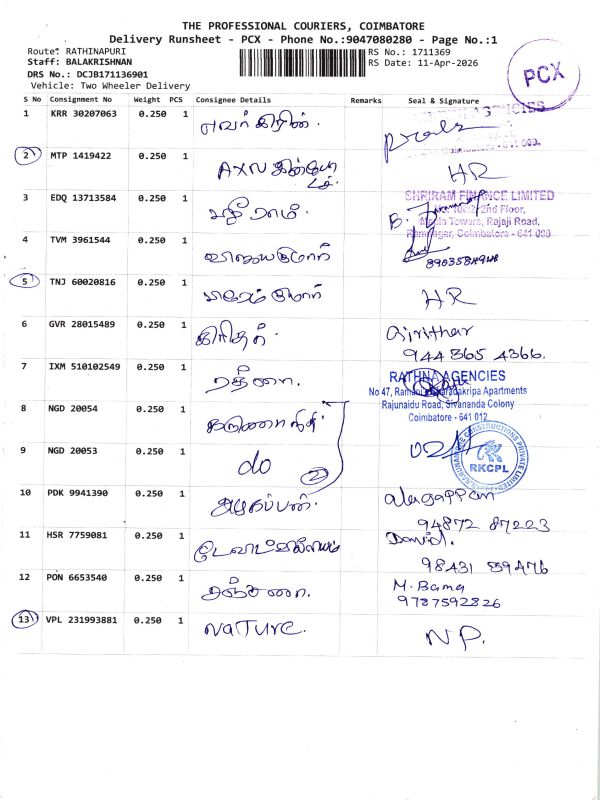 THE PROFESSIONAL COURIERS, COIMBATORE
Delivery Runsheet - PCX - Phone No.:9047080280 - Page No.:1
Route: RATHINAPURI
RS No.: 1711369
Staff: BALAKRISHNAN
RS Date: 11-Apr-2026
DRS No.: DCJB171136901
Vehicle: Two Wheeler Delivery
PCX
S No Consignment No Weight PCS Consignee Details Remarks Seal & Signature
1 KRR 30207063 0.250 1 எவர் கிரின்.
AGENCIES
2 MTP 1419422 0.250 1 AXN HR
3 EDQ 13713584 0.250 1
SHRIRAM FINANCE LIMITED
2nd Floor,
Towers, Rajaji Road,
Ramnagar, Coimbatore - 641 009
4 TVM 3961544 0.250 1 விஜயகுமார்
5 TNJ 60020816 0.250 1 HR
6 GVR 28015489 0.250 1 கிரிதர். Girithar
944 865 4366.
7 IXM 510102549 0.250 1 ரத்னா.
RATHNA AGENCIES
No 47, Ramani Apartments
Rajunaidu Road, Sivananda Colony
Coimbatore - 641 012
8 NGD 20054 0.250 1 கருணாநிதி
9 NGD 20053 0.250 1 do 2
RKCPL
10 PDK 9941390 0.250 1 அழகப்பன். alagappan
94872 87223
11 HSR 7759081 0.250 1 David.
98431 89476
12 PON 6653540 0.250 1 அஞ்சனா. M. Bama
9787592826
13 VPL 231993881 0.250 1 NaTURE. NP.